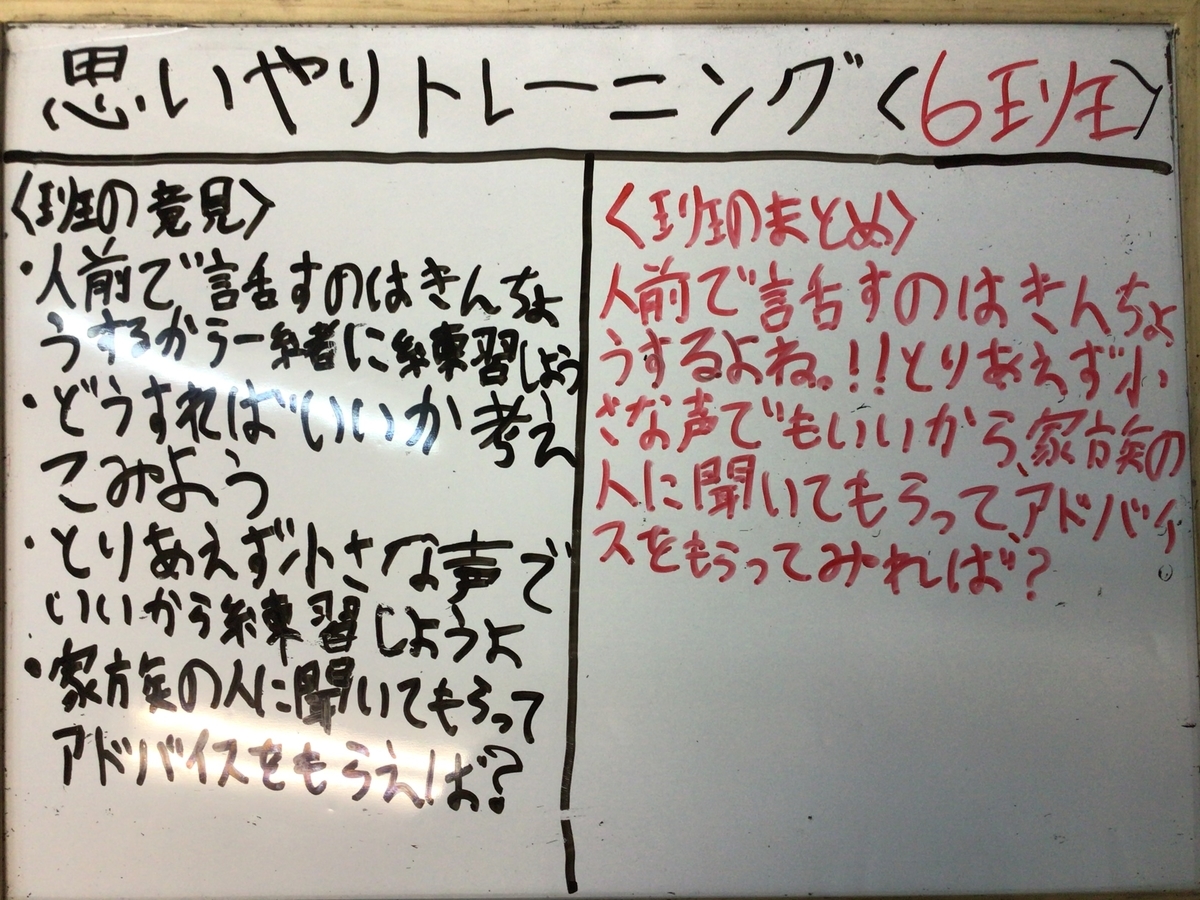 思いやりトレーニング〈6班〉
〈班の意見〉
・人前で話すのはきんちょ
うするから一緒に練習しよう
・どうすればいいか考え
こみよう
・とりあえず小さな声で
いいから練習しようよ
・家族の人に聞いてもらって
アドバイスをもらえば?
〈班のまとめ〉
人前で話すのはきんちょ
うするよね。!!とりあえず小
さな声でもいいから、家族の
人に聞いてもらって、アドバイ
スをもらってみれば?